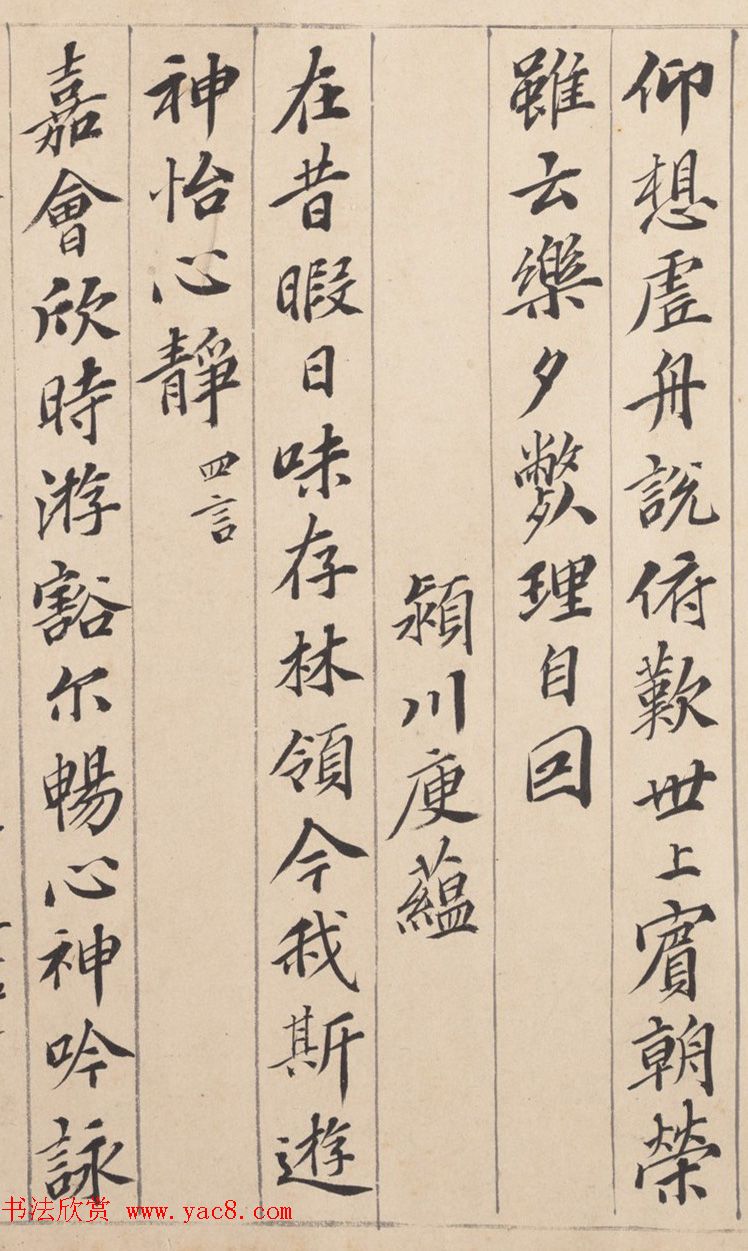 仰想虗舟說俯歎世上賓朝榮
雖云樂夕斃理自回
潁川庾蘊
在昔暇日味存林領今我斯遊
神怡心靜 四言
嘉會欣時游豁尔暢心神吟詠
书法欣赏 www.yac8.com